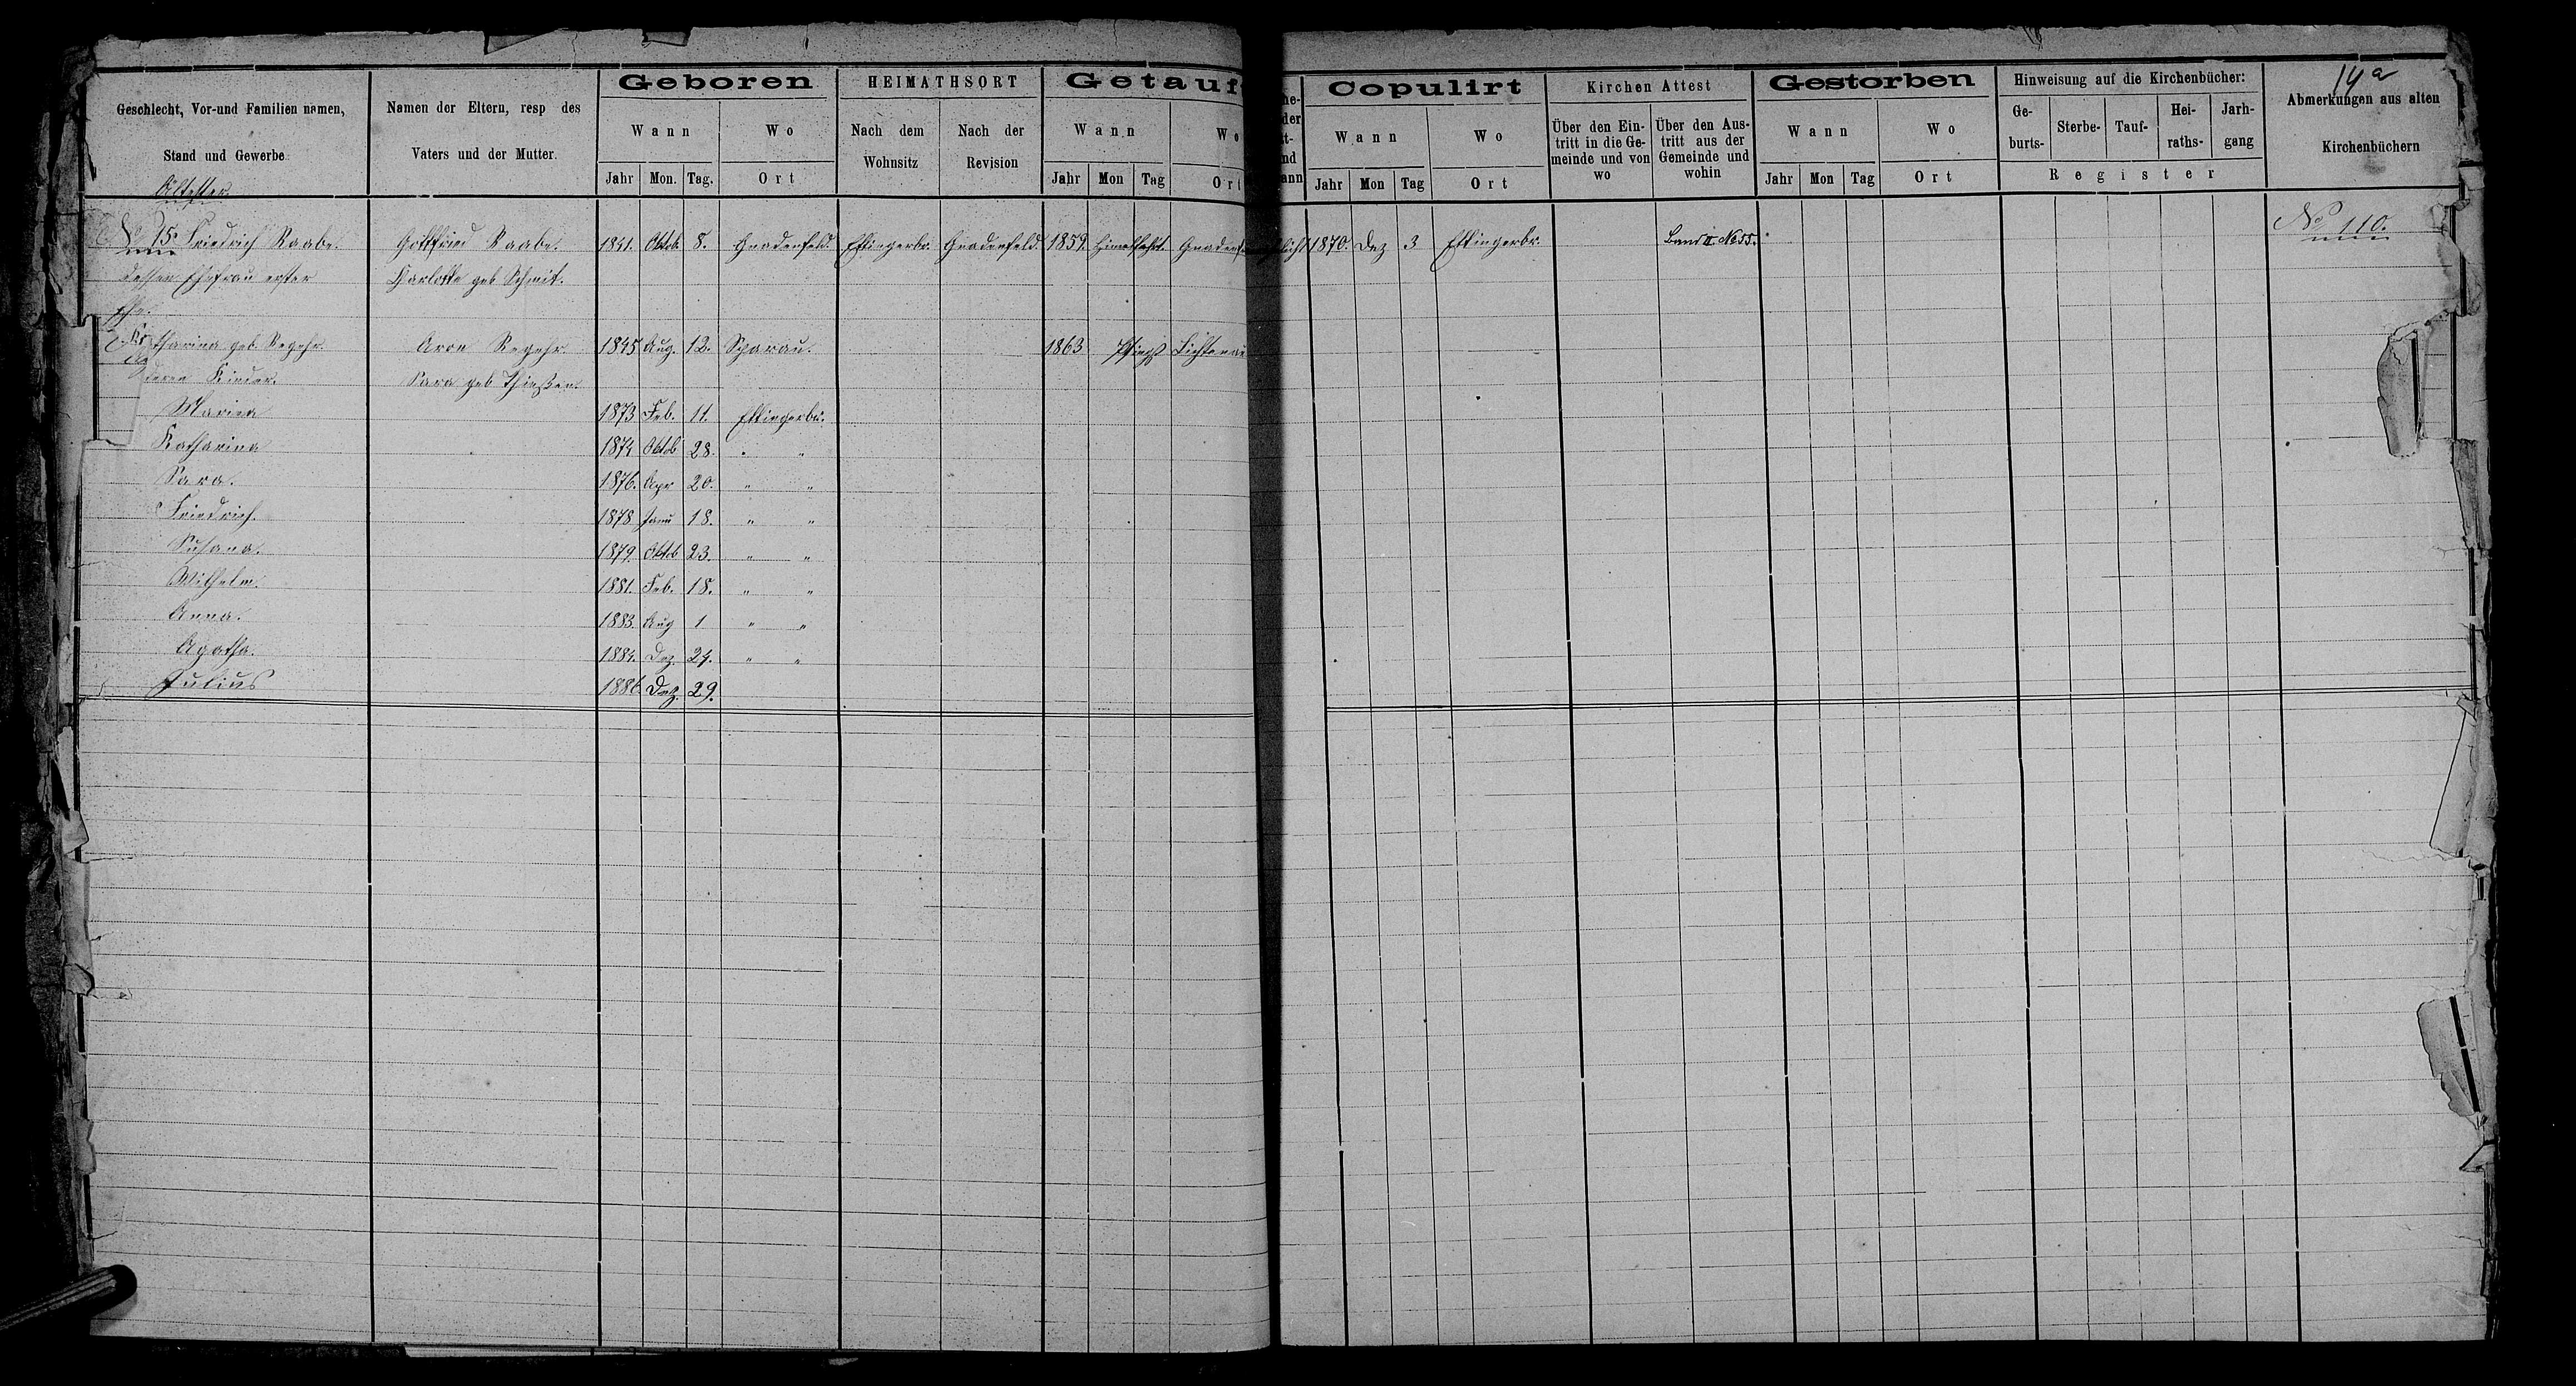 14a
Geboren HEIMATHSORT Getauf Copulirt Kirchen Attest Gestorben Hinweisung auf die Kirchenbücher:
Geschlecht, Vor-und Familien namen, Namen der Eltern, resp des Abmerkungen aus alten
Stand und Gewerbe Vaters und der Mutter. Kirchenbüchern
Wann Wo Nach dem Wohnsitz Nach der Revision Wann Wo Wann Wo Über den Eintritt in die Gemeinde und von wo Über den Austritt aus der Gemeinde und wohin Wann Wo Geburts- Sterbe- Tauf- Heiraths- Jarhgang
Jahr Mon. Tag. Ort Jahr Mon Tag Ort Jahr Mon Tag Ort Jahr Mon Tag Ort Register
Ältester.
15. Friedrich Raabe. Gottfried Raabe. 1841. Oktob. 8. Gnadenfeld. Ettingerbr. Gnadenfeld. 1859. Himelfahrt. Gnadenf 1870. Dez 3 Ettingerbr. Band II. No 55. No 110.
dessen Ehefrau erster Karlotte geb Schmit.
Ehe.
Katharina geb Regehr. Aron Regehr. 1845 Aug. 12. Sparau. 1863 Pfingst Lichtenau
deren Kinder. Sara geb Thießen.
Maria 1873 Feb. 11. Ettingerbr.
Katharina 1874 Oktob 28. " "
Sara. 1876. Apr 20. " "
Friedrich. 1878 Janu 18. " "
Susana. 1879. Oktob 23. " "
Wilhelm. 1881. Feb. 18. " "
Anna. 1883. Aug 1 " "
Agatha. 1884. Dez. 24. " "
Julius 1886 Dez. 29.